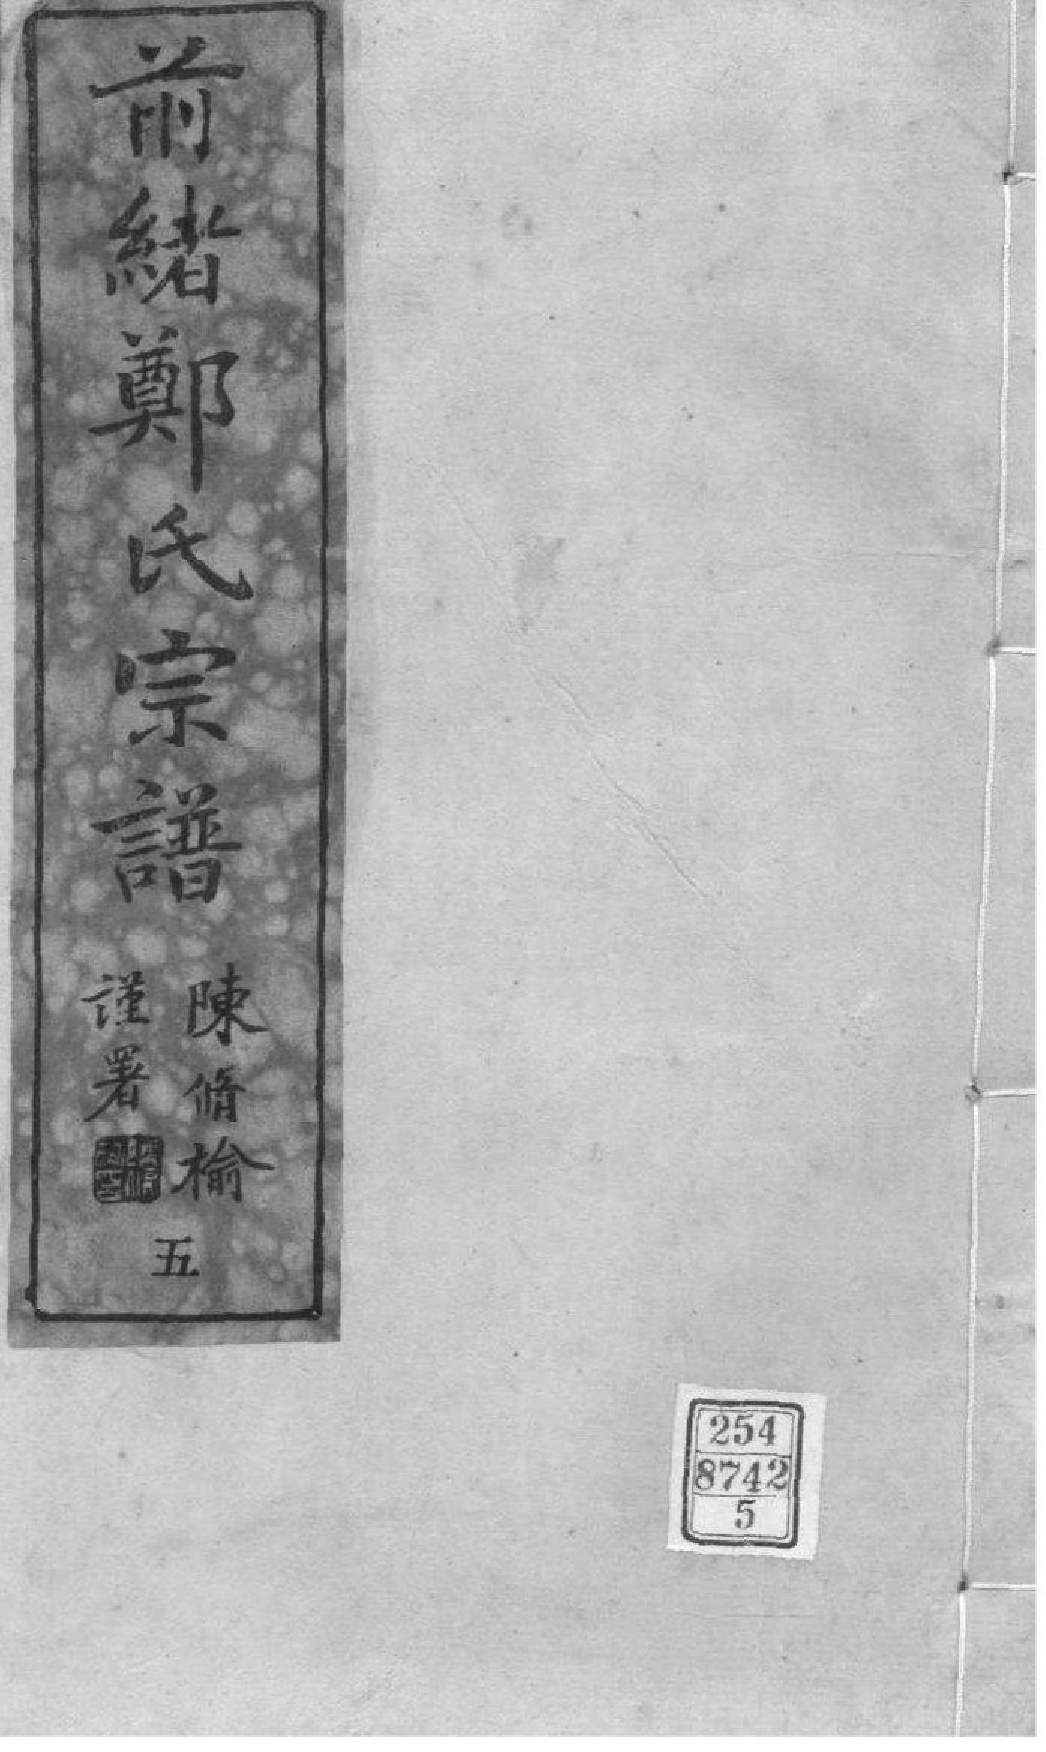 前緒鄭氏宗譜
陳脩榆
謹署
五
254
8742
5